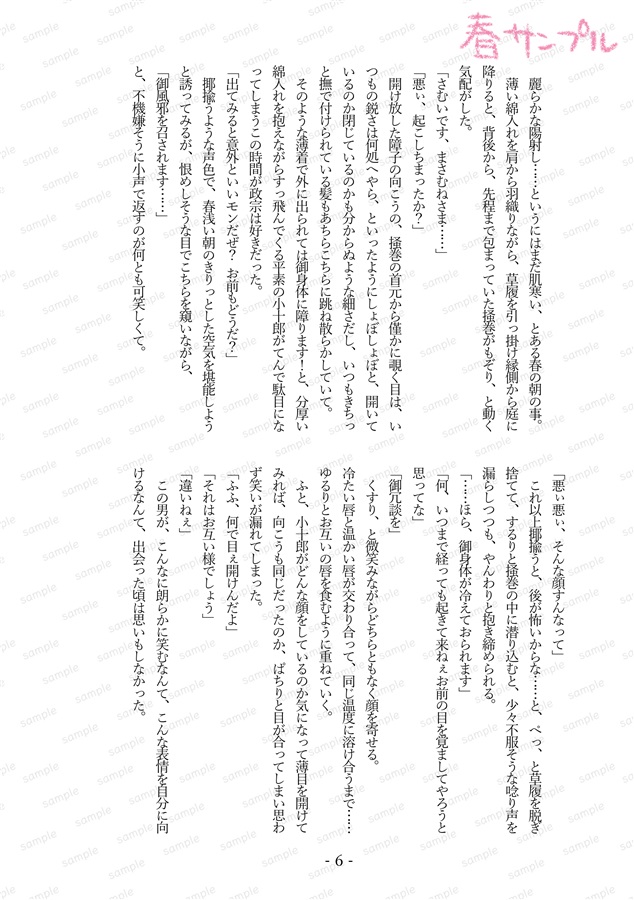 春サンプル
麗らかな陽射し……というにはまだ肌寒い、とある春の朝の事。
薄い綿入れを肩から羽織りながら、草履を引っ掛け縁側から庭に
降りると、背後から、先程まで包まっていた掻巻がもぞり、と動く
気配がした。
「さむいです、まさむねさま……」
「悪ぃ、起こしちまったか？」
開け放した障子の向こうの、掻巻の首元から僅かに覗く目は、い
つもの鋭さは何処へやら、といったようにしょぼしょぼと、開いて
いるのか閉じているのかも分からぬような細さだし、いつもきちっ
と撫で付けられている髪もあちらこちらに跳ね散らかしていて。
そのような薄着で外に出られては御身体に障ります！と、分厚い
綿入れを抱えながらすっ飛んでくる平素の小十郎がてんで駄目にな
ってしまうこの時間が政宗は好きだった。
「出てみると意外といいモンだぜ？　お前もどうだ？」
揶揄うような声色で、春浅い朝のきりっとした空気を堪能しよう
と誘ってみるが、恨めしそうな目でこちらを窺いながら、
「御風邪を召されます……」
と、不機嫌そうに小声で返すのが何とも可笑しくて。
「悪ぃ悪ぃ、そんな顔すんなって」
これ以上揶揄うと、後が怖いからな……と、ぺっ、と草履を脱ぎ
捨てて、するりと掻巻の中に潜り込むと、少々不服そうな唸り声を
漏らしつつも、やんわりと抱き締められる。
「……ほら、御身体が冷えておられます」
「何、いつまで経っても起きて来ねぇお前の目を覚ましてやろうと
思ってな」
「御冗談を」
くすり、と微笑みながらどちらともなく顔を寄せる。
冷たい唇と温かい唇が交わり合って、同じ温度に溶け合うまで……
ゆるりとお互いの唇を食むように重ねていく。
ふと、小十郎がどんな顔をしているのか気になって薄目を開けて
みれば、向こうも同じだったのか、ぱちりと目が合ってしまい思わ
ず笑いが漏れてしまった。
「ふふ、何で目ぇ開けんだよ」
「それはお互い様でしょう」
「違いねぇ」
この男が、こんなに朗らかに笑むなんて、こんな表情を自分に向
けるなんて、出会った頃は思いもしなかった。
- 6 -